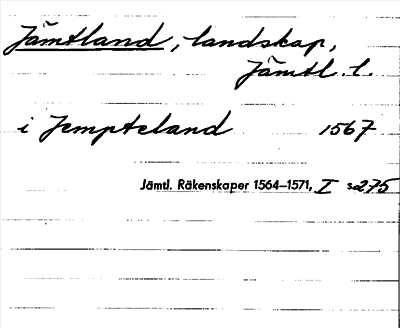 Jämtland, landskap,
Jämtl. l.
i Jempteland 1567
Jämtl. Räkenskaper 1564–1571, I s 275